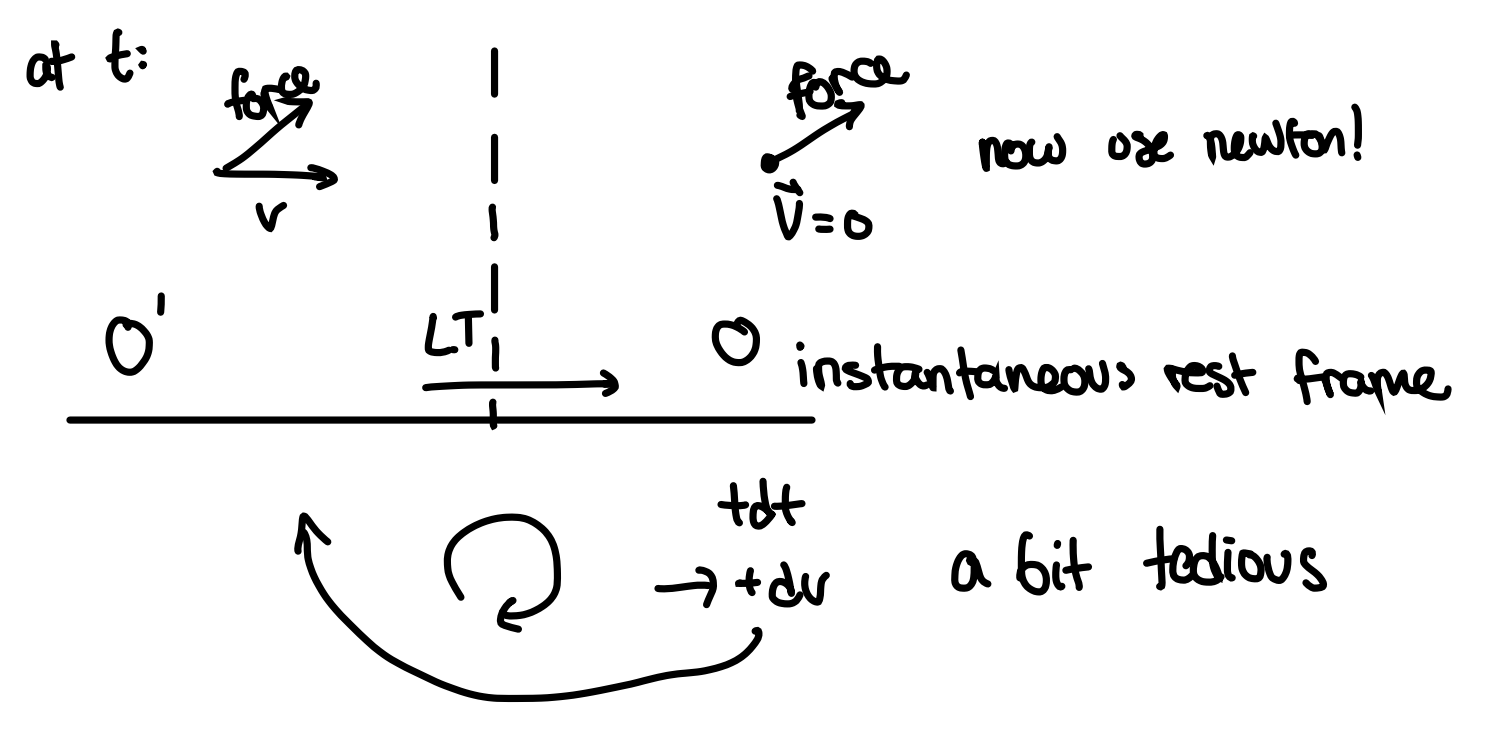 at t:
force
force
now use newton!
v
v⃗=0
O'
LT
O instantaneous rest frame
+dt
→ +dv
a bit tedious